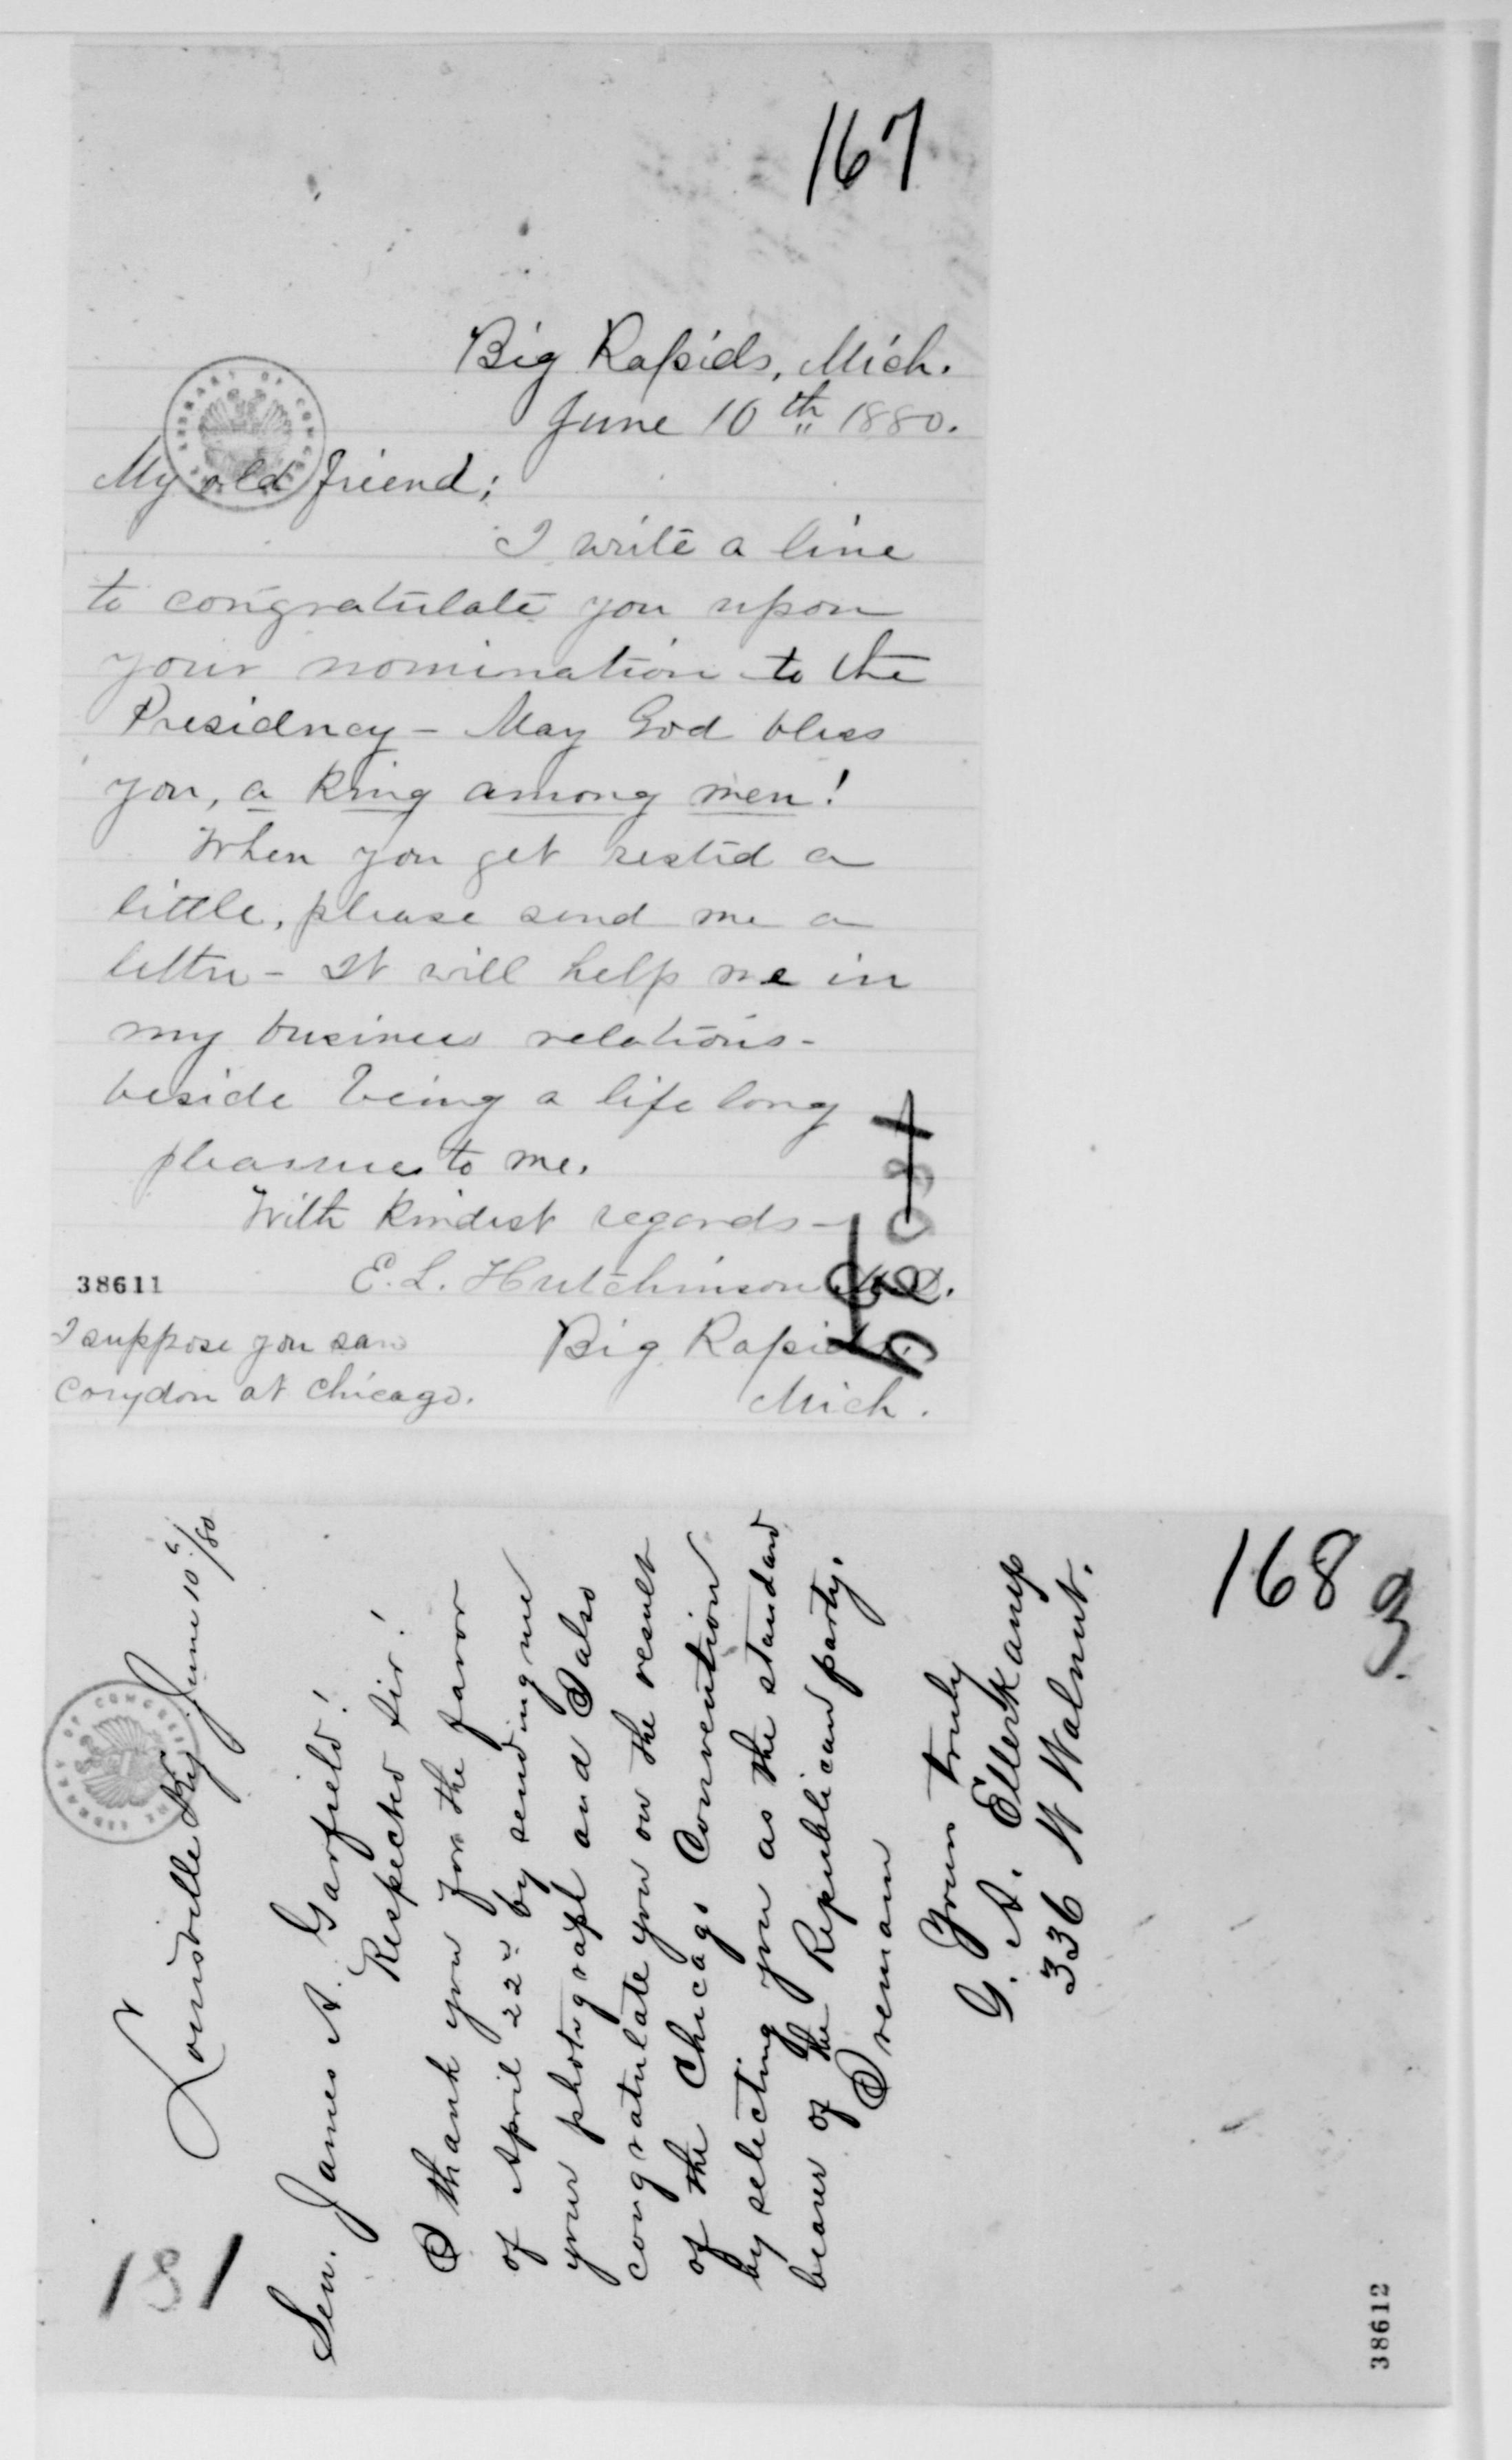 167
Big Rapids, Mich.
June 10th 1880.
My old friend;
I write a line
to congratulate you upon
your nomination to the
Presidncy - May God bless
you, a King among men!
When you get rested a
little, please send me a
letter - It will help me in
my business relations -
beside being a life long
pleasure to me.
With kindest regards -
E. L. Hutchinson M.D.
Big Rapids.
Mich.
38611
I suppose you saw
Corydon at Chicago.
LIBRARY OF CONGRESS
168
3
181
THE LIBRARY OF CONGRESS
Louisville Ky June 10th/80
Sen. James A. Garfield!
Respected Sir!
I thank you for the favor
of April 22d by sending me
your photograph and I also
congratulate you on the result
of the Chicago Convention
by selecting you as the standard
bearer of the Republican party.
I remain
Yours truly
G. A. Ellerkamp
336 W Walnut.
38612